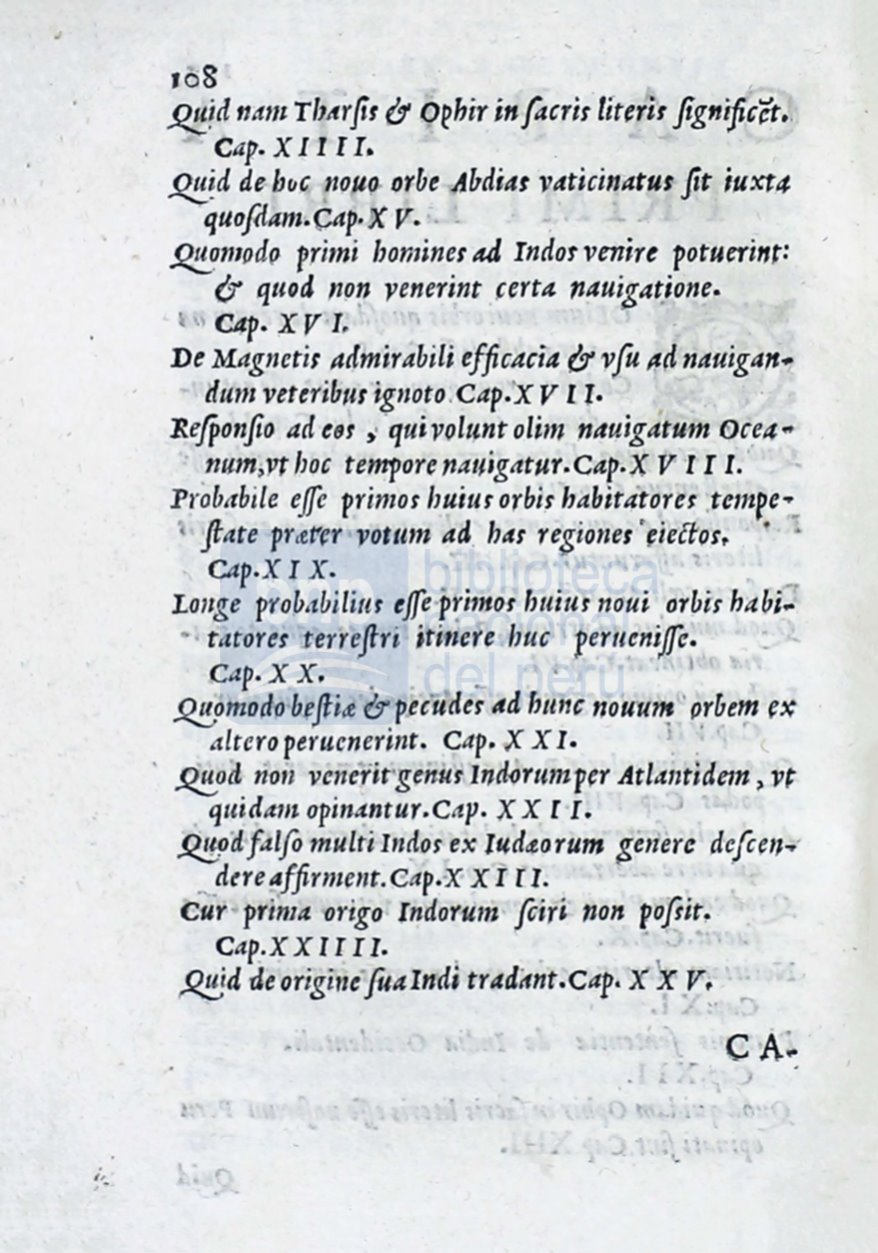 108
Quid nam Tharſis & Ophir in ſacris literis ſignificēt.
Cap. XIIII.
Quid de hoc nouo orbe Abdias vaticinatus ſit iuxta
quoſdam. Cap. XV.
Quomodo primi homines ad Indos venire potuerint:
& quod non venerint certa nauigatione.
Cap. XVI.
De Magnetis admirabili efficacia & vſu ad nauigan-
dum veteribus ignoto Cap. XVII.
Reſponſio ad eos, qui volunt olim nauigatum Ocea-
num, vt hoc tempore nauigatur. Cap. XVIII.
Probabile eſſe primos huius orbis habitatores tempe-
ſtate præter votum ad has regiones eiectos.
Cap. XIX.
Longe probabilius eſſe primos huius noui orbis habi-
tatores terreſtri itinere huc perueniſſe.
Cap. XX.
Quomodo beſtiæ & pecudes ad hunc nouum orbem ex
altero peruenerint. Cap. XXI.
Quod non venerit genus Indorum per Atlantidem, vt
quidam opinantur. Cap. XXII.
Quod falſo multi Indos ex Iudæorum genere deſcen-
dere affirment. Cap. XXIII.
Cur prima origo Indorum ſciri non poſsit.
Cap. XXIIII.
Quid de origine ſua Indi tradant. Cap. XXV.
CA-
bnp biblioteca
nacional
del perú